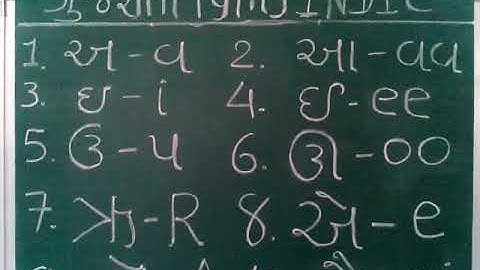 ગુજરાતી (ગુજ) INDIC
1. અ - a 2. આ - aa
3. ઇ - i 4. ઈ - ee
5. ઉ - u 6. ઊ - oo
7. ઋ - R 8. એ - e